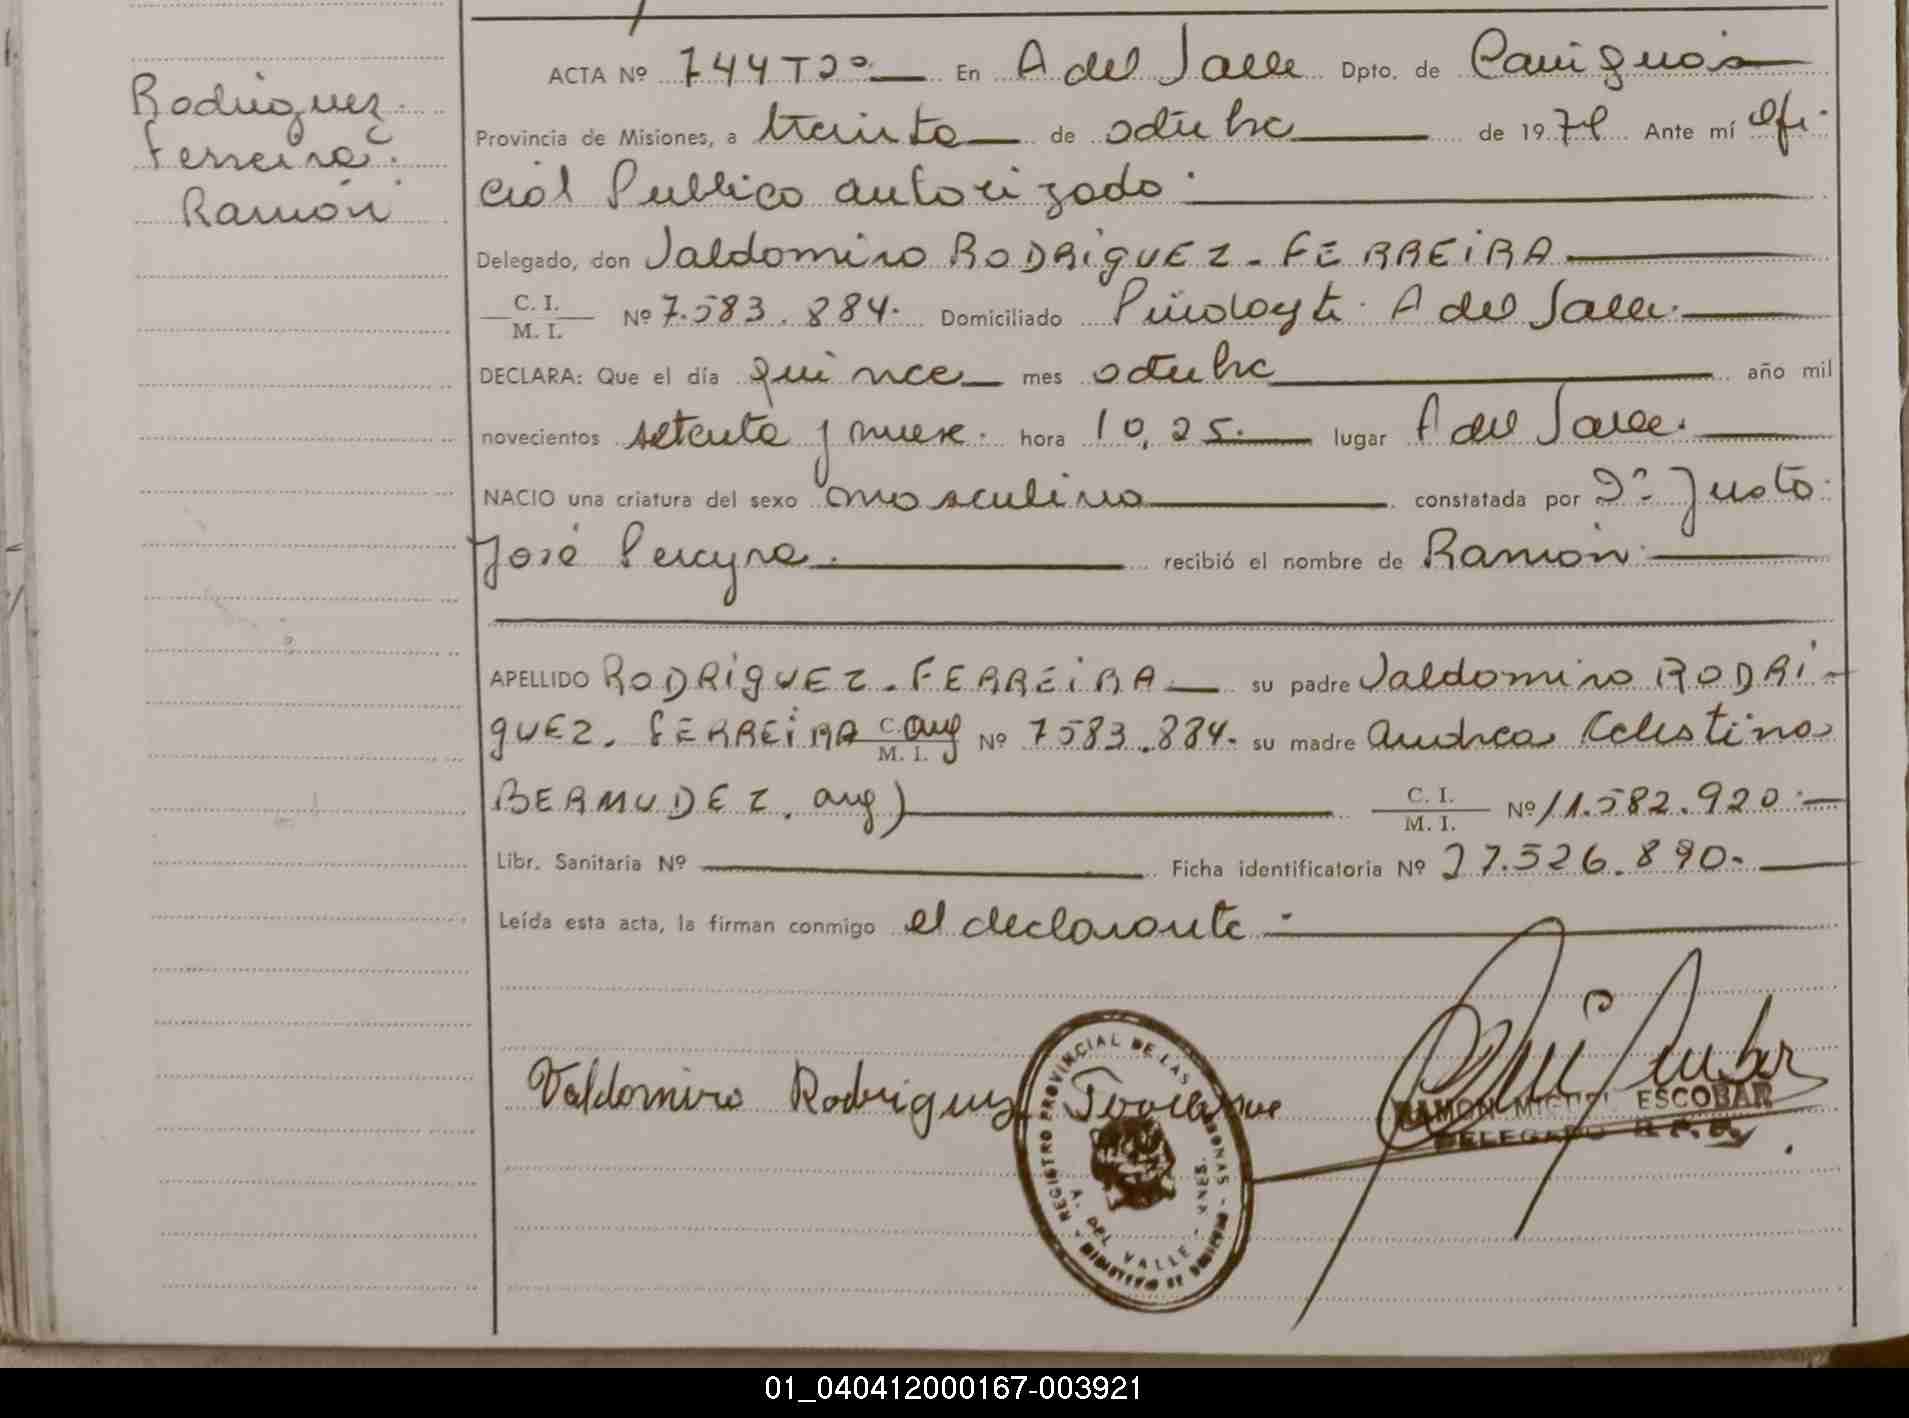 Rodriguez
Ferreira
Ramón
ACTA Nº 744 T2º En A del Valle Dpto. de Cainguás
Provincia de Misiones, a treinta de octubre de 1979 Ante mí Ofi-
cial Publico autorizado.
Delegado, don Valdomiro RODRIGUEZ - FERREIRA
C. I.
M. I. Nº 7.583.884. Domiciliado A del Valle.
DECLARA: Que el día quince mes octubre año mil
novecientos setenta y nueve. hora 10,25. lugar A del Valle.
NACIO una criatura del sexo masculino constatada por Dº Justo
José Pereyra. recibió el nombre de Ramón.
APELLIDO RODRIGUEZ - FERREIRA su padre Valdomiro RODRI-
GUEZ - FERREIRA arg Nº 7583.884. su madre Andrea Celestina
M. I.
BERMUDEZ. arg) C. I. Nº 11.582.920.
M. I.
Libr. Sanitaria Nº Ficha identificatoria Nº 27.526.890.
Leída esta acta, la firman conmigo el declarante.
Valdomiro Rodriguez
REGISTRO PROVINCIAL DE LAS PERSONAS - MISIONES - MINISTERIO DE GOBIERNO
A. DEL VALLE
RAMON MIGUEL ESCOBAR
DELEGADO R.P.P.
01_040412000167-003921